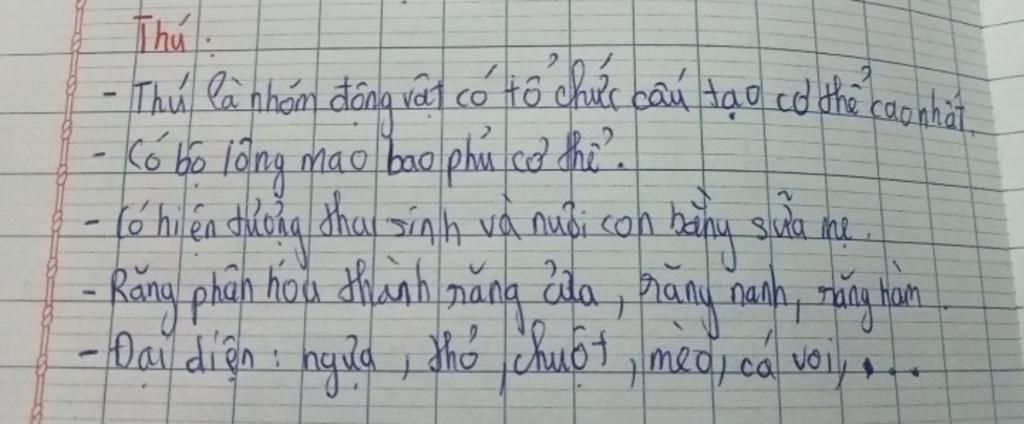 Thú :
- Thú là nhóm động vật có tổ chức cấu tạo cơ thể cao nhất.
- Có bộ lông mao bao phủ cơ thể.
- Có hiện tượng thai sinh và nuôi con bằng sữa mẹ.
- Răng phân hóa thành răng cửa, răng nanh, răng hàm.
- Đại diện : ngựa, thỏ, chuột, mèo, cá voi, ...